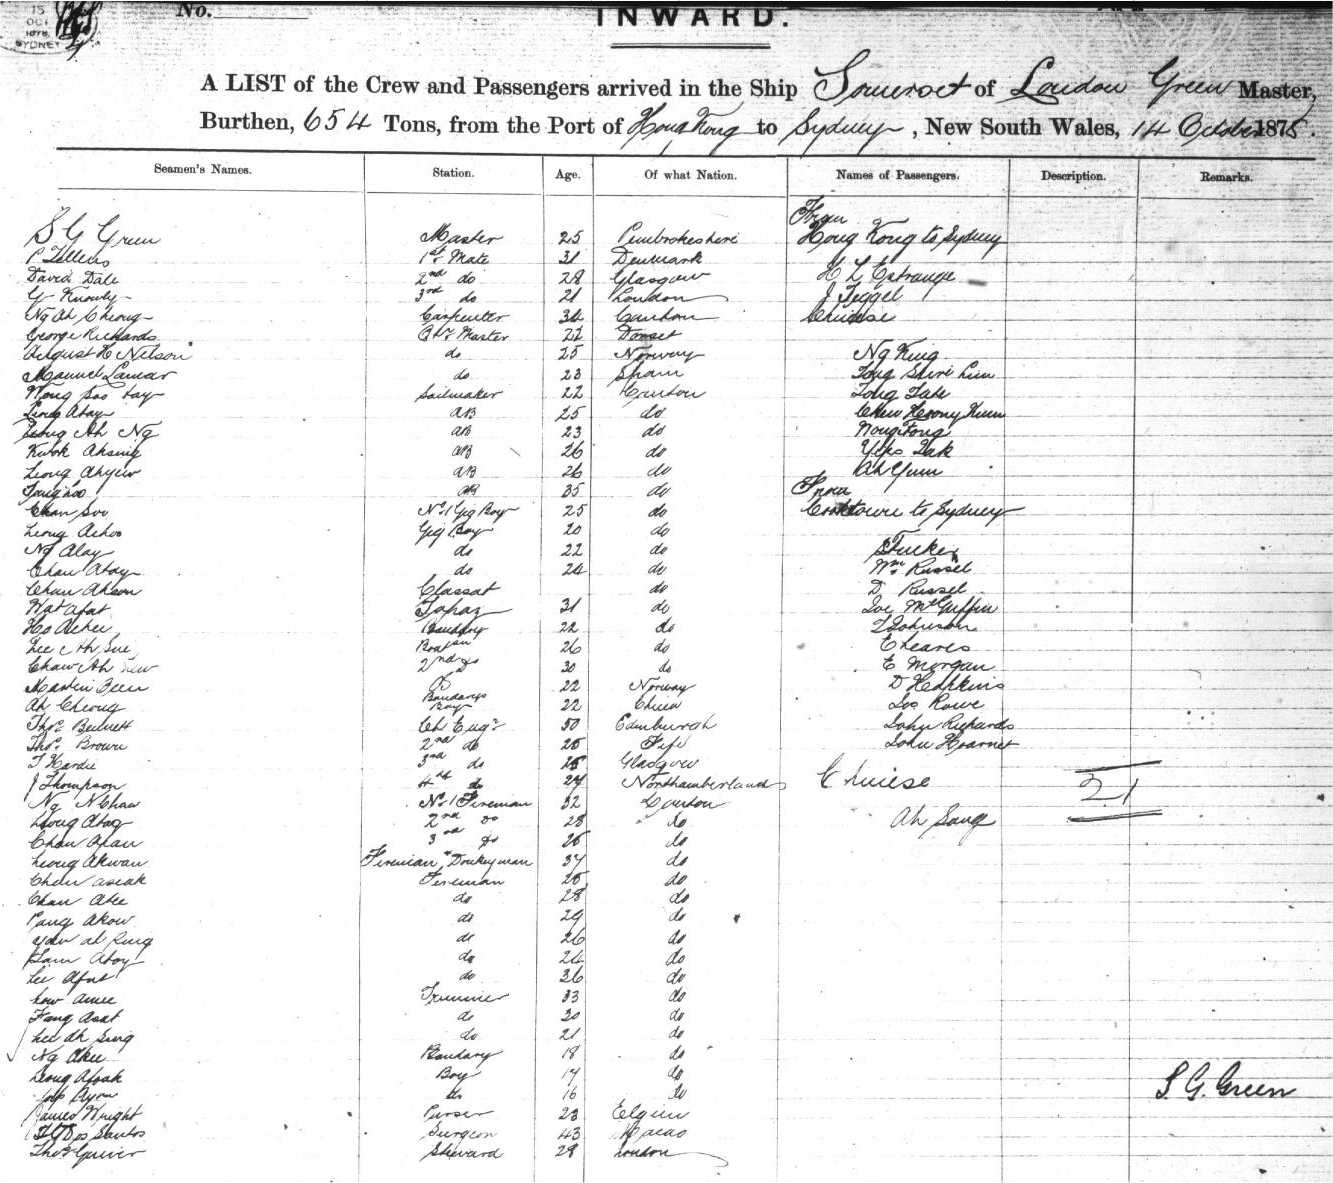 15
OCT
1878
SYDNEY
No.
INWARD.
A LIST of the Crew and Passengers arrived in the Ship Somerset of London Green Master,
Burthen, 654 Tons, from the Port of Hong Kong to Sydney, New South Wales, 14 October 1878.
Seamen's Names. Station. Age. Of what Nation. Names of Passengers. Description. Remarks.
From
S G Green Master 25 Pembrokeshire Hong Kong to Sydney
P 1st Mate 31 Denmark
David Dale 2nd do 28 Glasgow H L Estrange
G 3rd do 21 London J Teggel
Ng Ah Cheong Carpenter 34 Canton Chinese
George Richards Qtr Master 22 Dorset
August H Nelson do 25 Norway Ng King
Manuel Lamar do 23 Spain Tong
Wong Soo Sailmaker 22 Canton Tong
Leong Atay AB 25 do Chew
Leong Ah Ng AB 23 do
Kwok Ahsing AB 26 do
Leong Ahyew AB 26 do Ah Yum
AB 35 do From
Chan Soo No 1 Gig Boy 25 do Cooktown to Sydney
Leong Achoo Gig Boy 20 do
Ng Alay do 22 do Tucker
Chan Atay do 24 do Wm Russel
Chan Ahson Classat do D Russel
Wat Afat Topaz 31 do Joe McGuffin
Ho Achee Bandary 22 do J Johnson
Lee Ah Sue Boatsn 26 do E Leares
Chaw Ah 2nd do 30 do E Morgan
Martin 22 Norway D Hopkins
Ah Cheong Bandarys Boy 22 China Jos Rowe
Thos Bennett Ch Engr 50 Edinburgh John Richards
Thos Brown 2nd do 25 Fife John
T Hardie 3rd do 25 Glasgow
J Thompson 4th do 27 Northamberland Chinese 21
Ng No 1 Fireman 32 Canton
Leong Atag 2nd do 28 do Ah Sang
Chan 3rd do 25 do
Leong Akwan Fireman & Donkeyman 37 do
Chan Fireman 25 do
Chan Atee do 28 do
Pang Akow do 29 do
do 26 do
Lam Atoy do 24 do
Lee Afat do 36 do
Low Amee Trimmer 33 do
Fang Asat do 30 do
Lee Ah Sing do 21 do
Ng Akee Bandary 18 do
Leong Boy 17 do S. G. Green
do 16 do
James Wright Purser 23 Elgin
Dos Santos Surgeon 43 Macao
Thos Guiver Steward 28 London